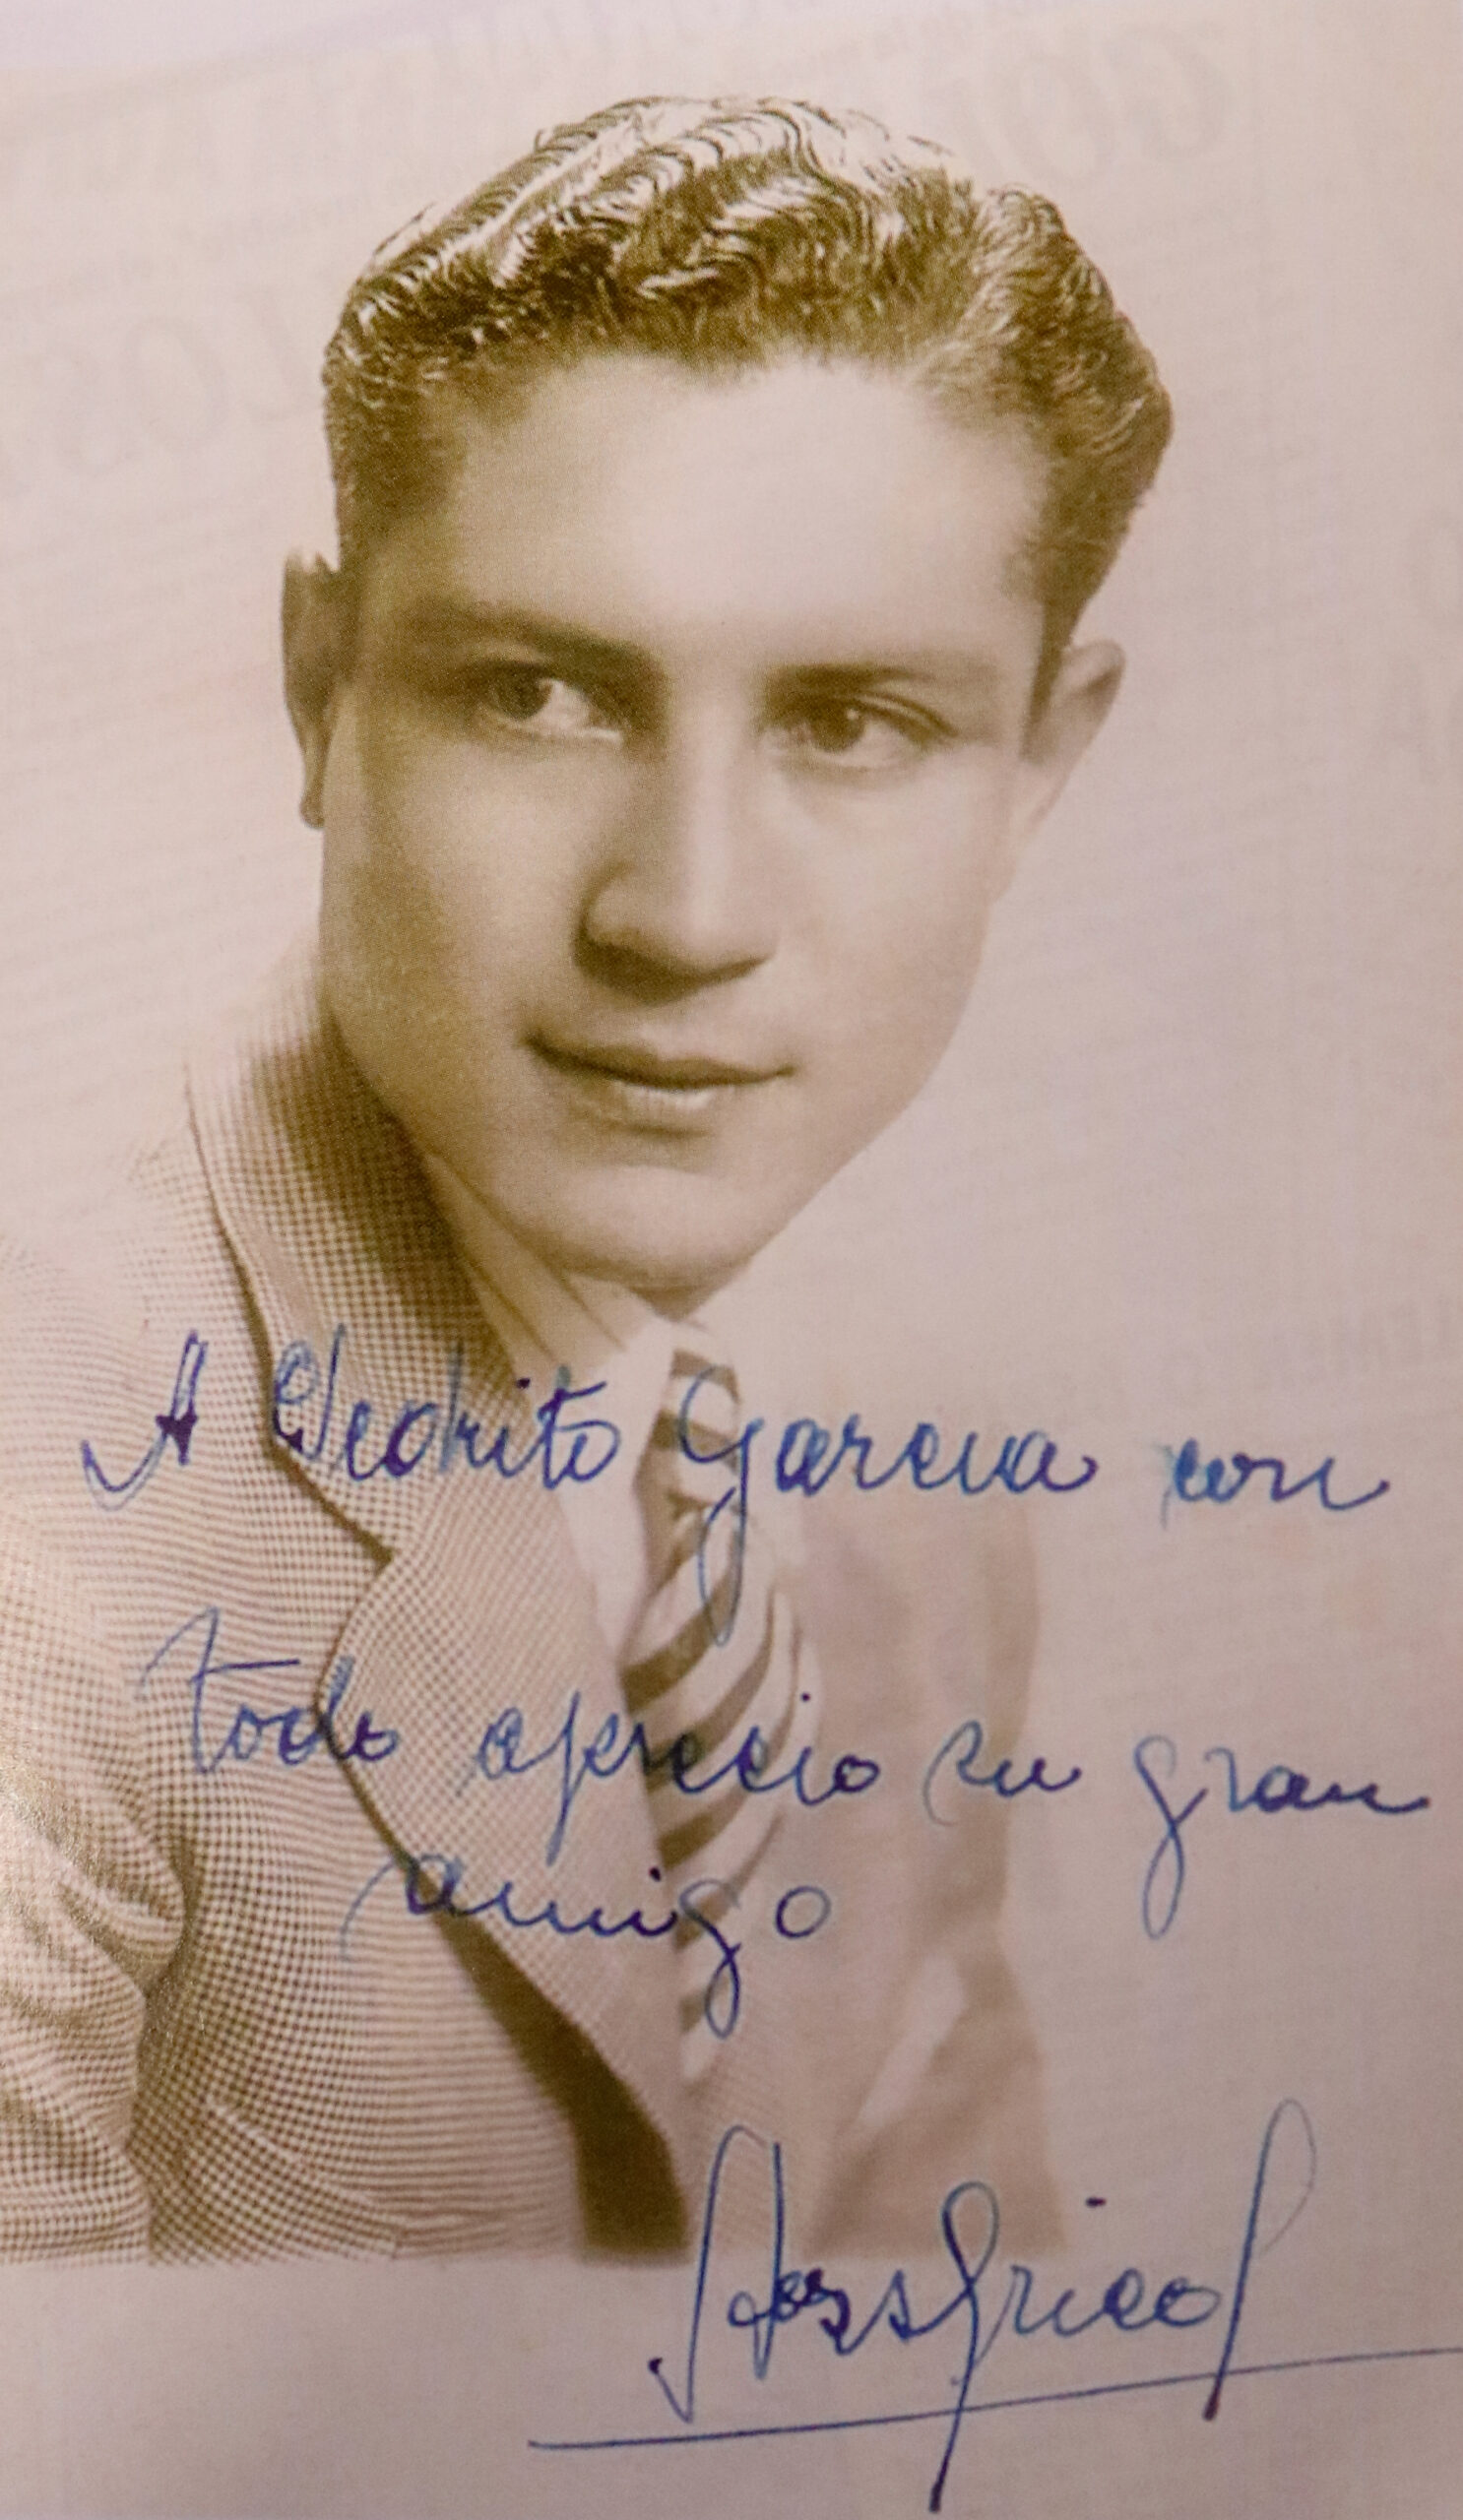 A Pedrito Garcia con
todo aprecio su gran
amigo